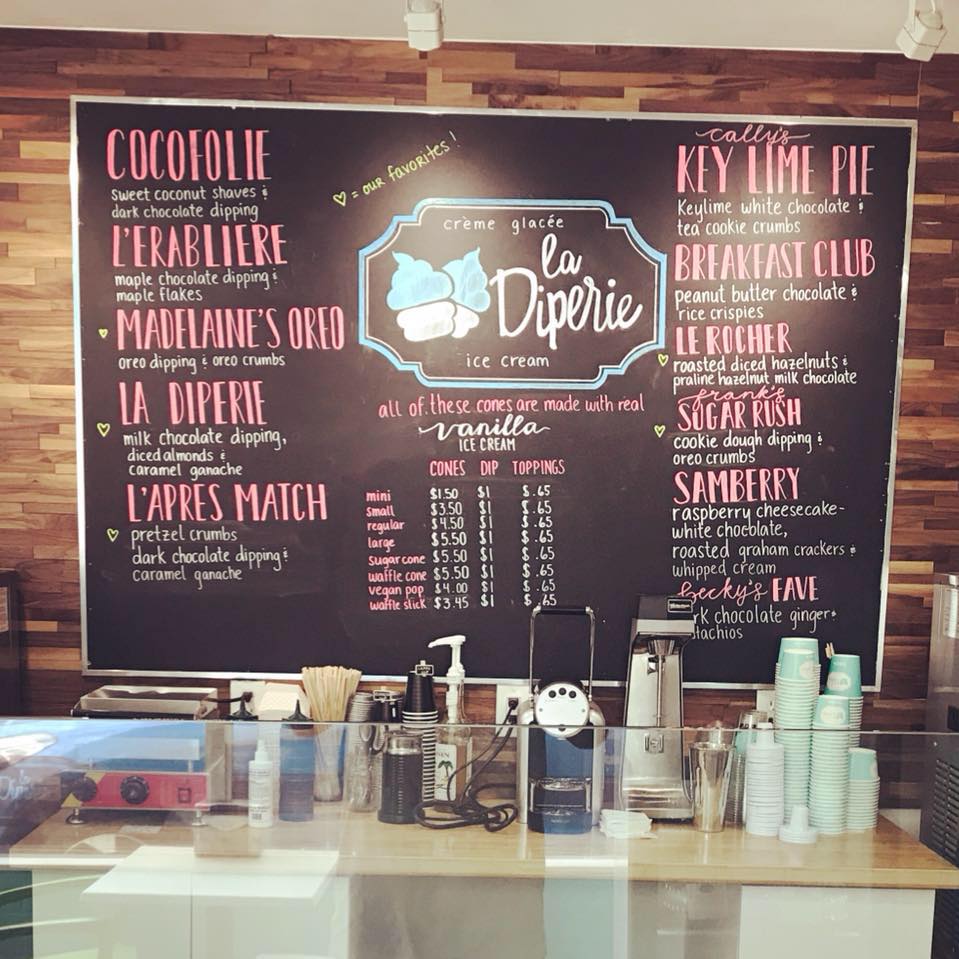 COCOFOLIE
sweet coconut shaves &
dark chocolate dipping
L'ERABLIERE
maple chocolate dipping &
maple flakes
MADELAINE'S OREO
oreo dipping & oreo crumbs
LA DIPERIE
milk chocolate dipping,
diced almonds &
caramel ganache
L'APRES MATCH
pretzel crumbs
dark chocolate dipping &
caramel ganache
= our favorites!
crème glacée
la
Diperie
ice cream
all of these cones are made with real
vanilla
ICE CREAM
CONES DIP TOPPINGS
mini $1.50 $1 $.65
small $3.50 $1 $.65
regular $4.50 $1 $.65
large $5.50 $1 $.65
sugar cone $5.50 $1 $.65
waffle cone $5.50 $1 $.65
vegan pop $4.00 $1 $.65
waffle stick $3.45 $1 $.65
cally's
KEY LIME PIE
Keylime white chocolate &
tea cookie crumbs
BREAKFAST CLUB
peanut butter chocolate &
rice crispies
LE ROCHER
roasted diced hazelnuts &
praline hazelnut milk chocolate
frank's
SUGAR RUSH
cookie dough dipping &
oreo crumbs
SAMBERRY
raspberry cheesecake-
white chocolate,
roasted graham crackers &
whipped cream
becky's FAVE
chocolate ginger &